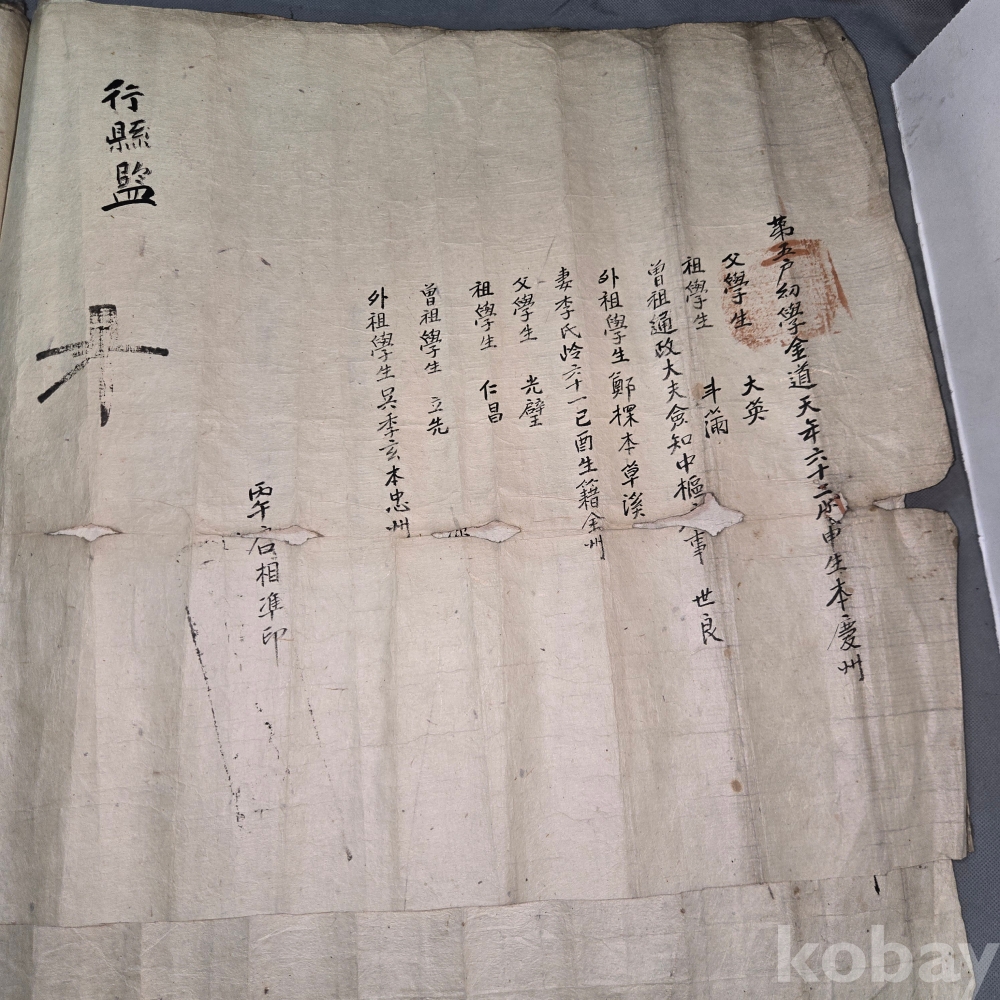 第五戶幼學金道天年六十二戊申生本慶州
父學生 大英
祖學生 斗滿
曾祖通政大夫僉知中樞事 世良
外祖學生鄭棵本草溪
妻李氏齡六十一己酉生籍全州
父學生 光璧
祖學生 仁昌
曾祖學生 立先
外祖學生吳季玄本忠州
丙午戶口相準印
行縣監
kobay